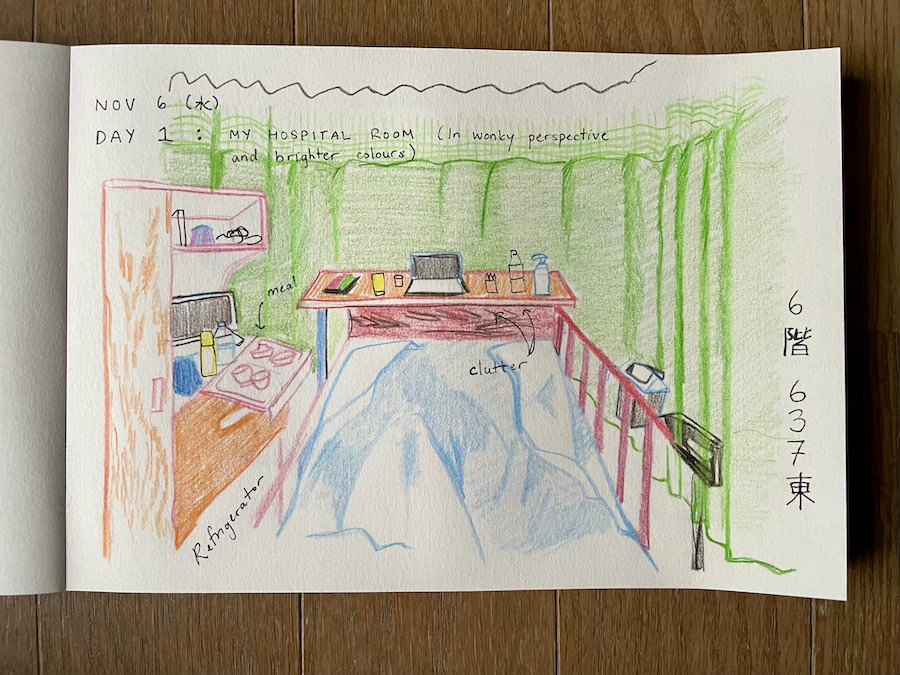 NOV 6 (水)
DAY 1 : MY HOSPITAL ROOM (In wonky perspective
and brighter colours)
meal
clutter
Refrigerator
6階 637東